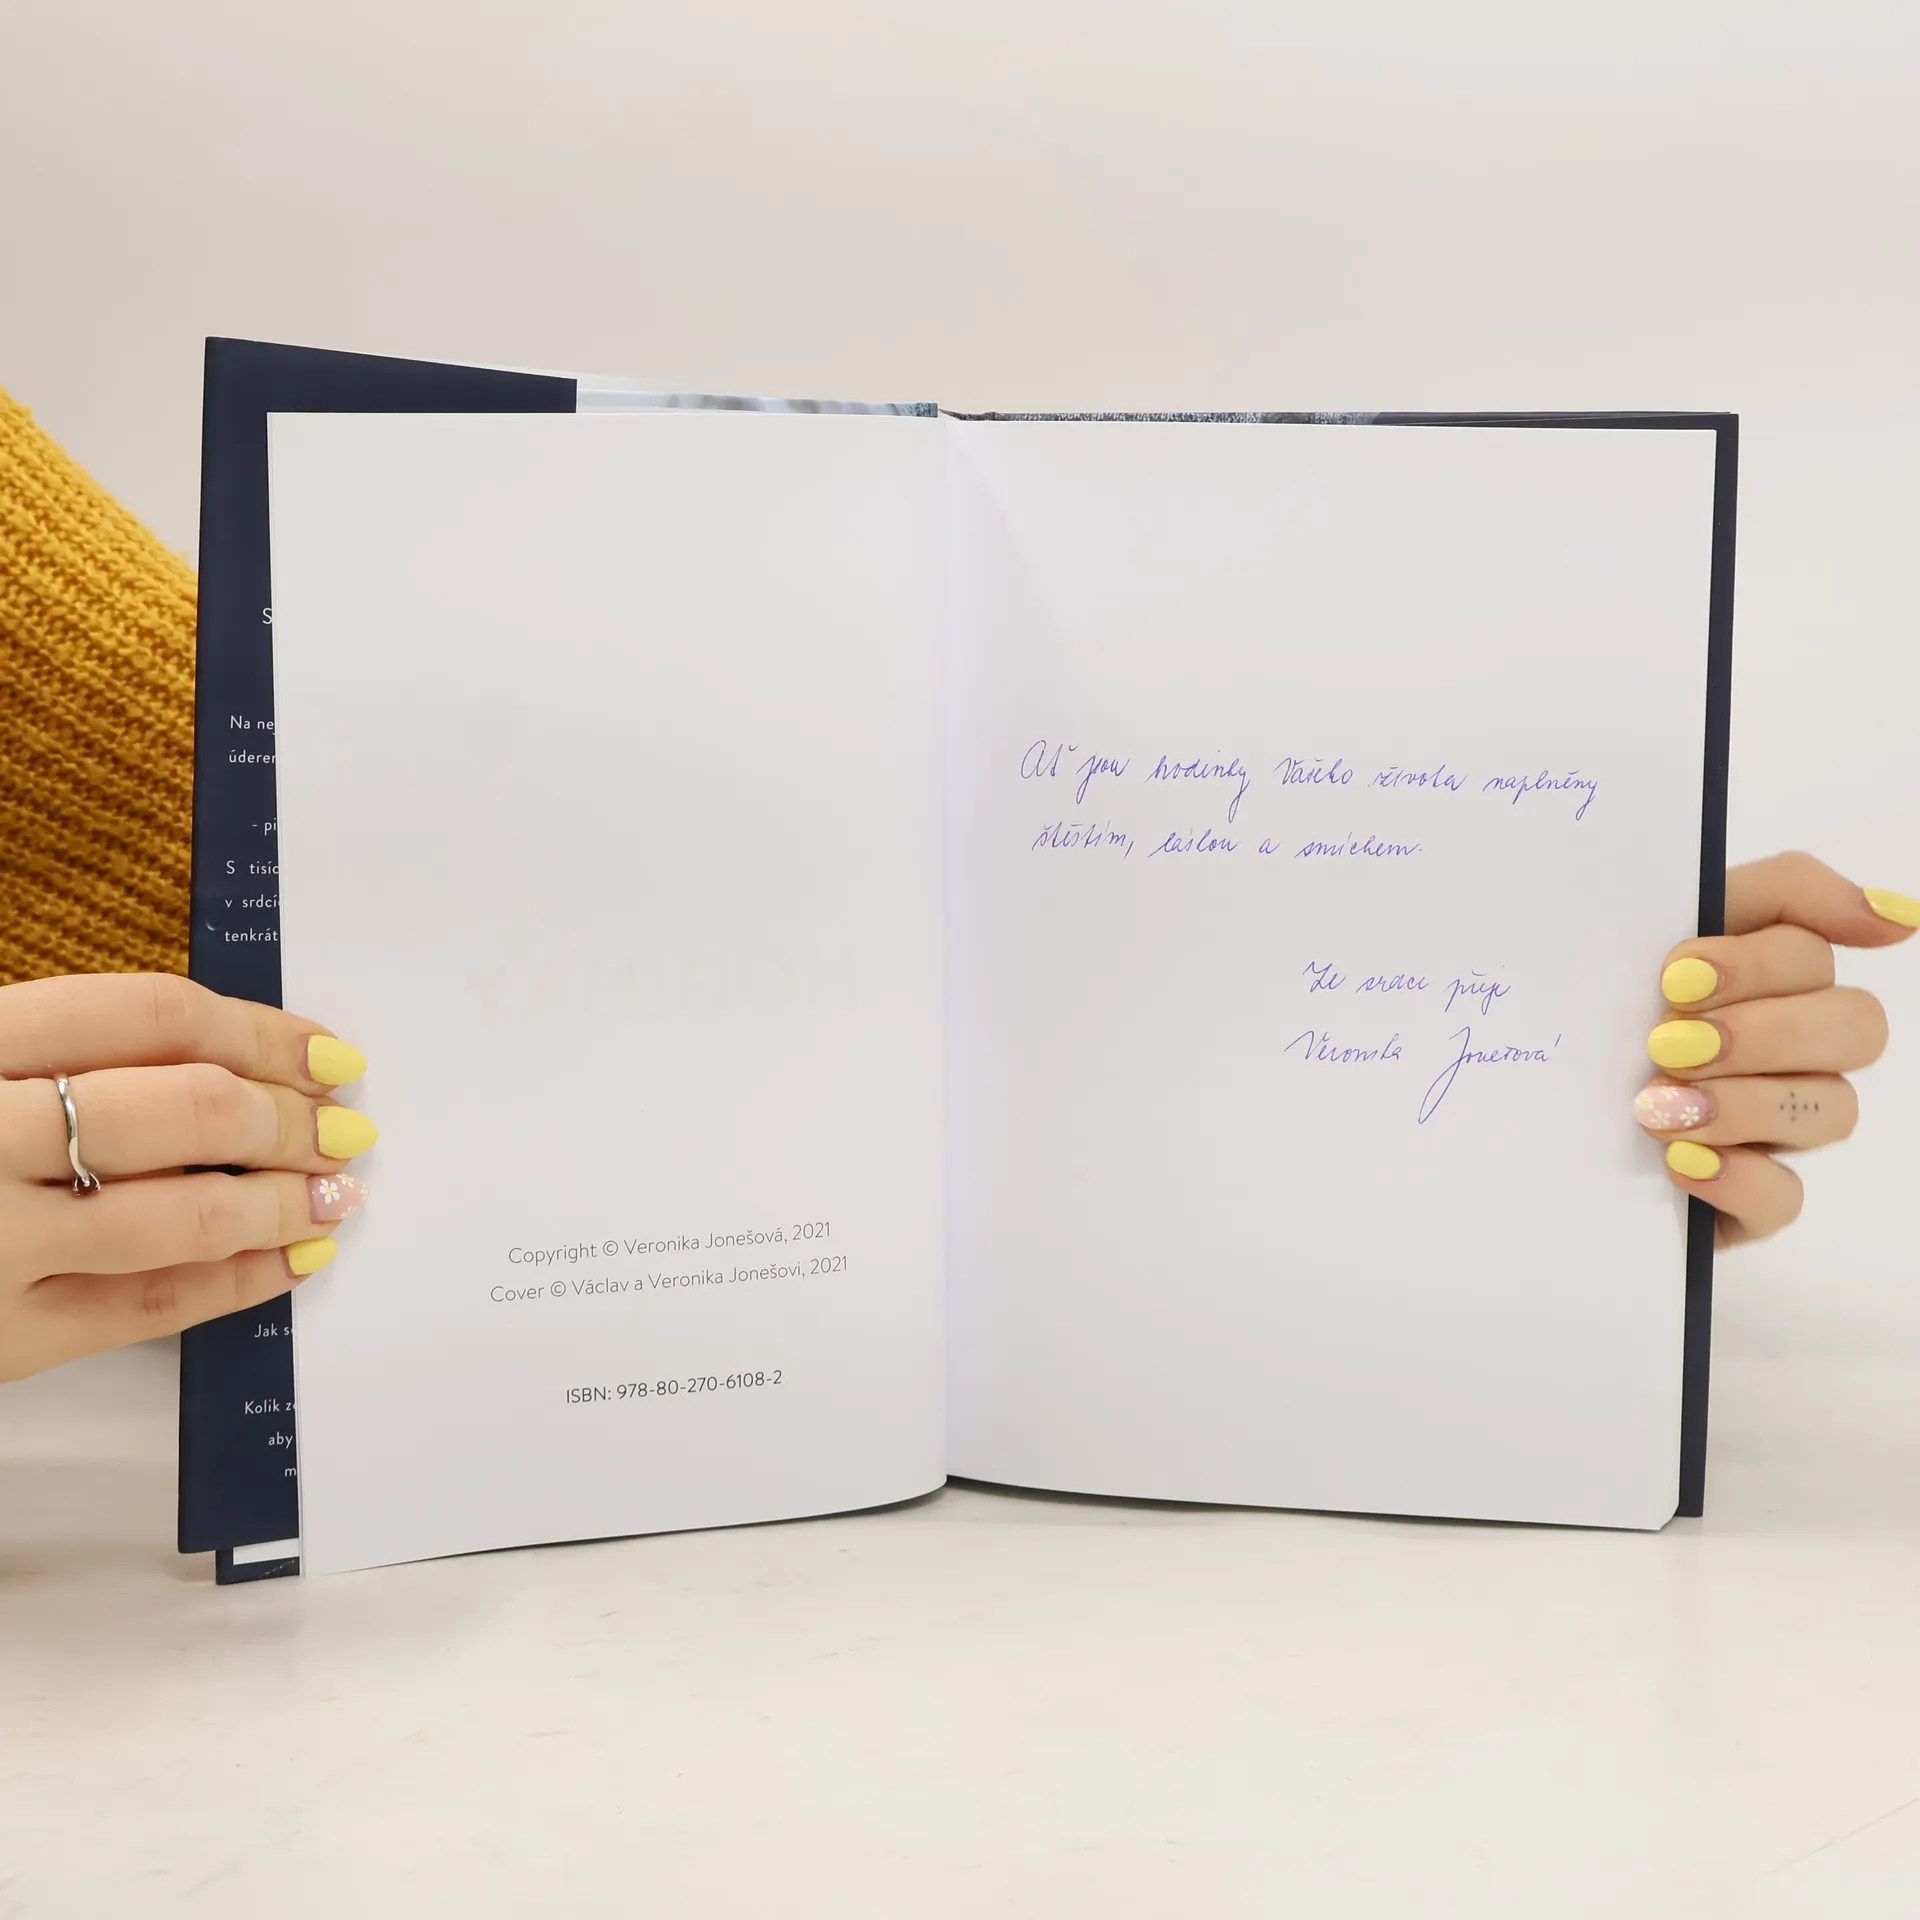 S
Na nej
úderer
- pi
S tisíc
v srdcí
tenkrát
Jak s
Kolik z
aby
m
Copyright © Veronika Jonešová, 2021
Cover © Václav a Veronika Jonešovi, 2021
ISBN: 978-80-270-6108-2
Ať jsou hodinky Vašeho života naplněny
štěstím, láskou a smíchem.
Ze srdce přeje
Veronika Jonešová